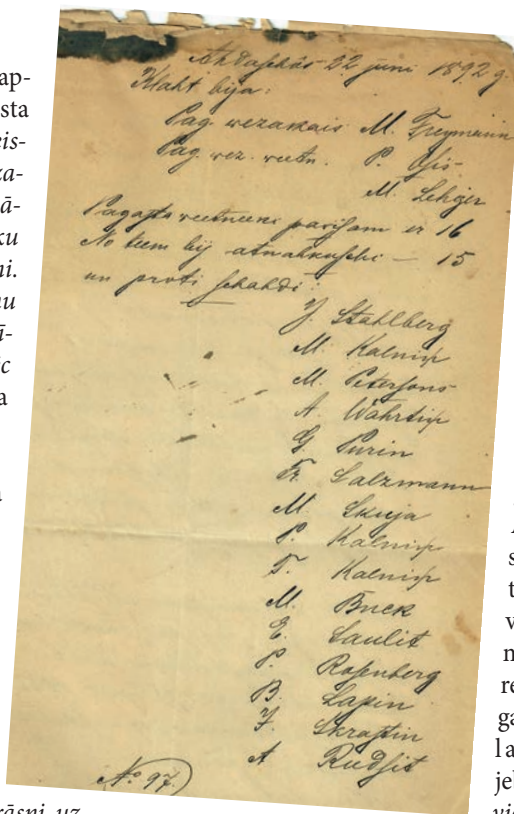 ap-
sta
eis-
za-
ā-
ku
ni.
nu
ū-
c
a
Ahdaschös 22 juni 1892 g.
Klaht bija:
Pag. wezakais M. Freymann
Pag. wez. weetn. P. Ohsis
M. Lehger
Pagasta weetneeki pawisam ir 16
No teem bij atnahkuschi — 15
un proti schahdi:
J. Stahlberg
M. Kalniņ
M. Petersons
A. Wahrtiņ
G. Purin
Fr. Salzmann
M. Skuja
P. Kalniņ
T. Kalniņ
M. Buck
E. Saulit
P. Rosenberg
B. Lapin
J. Skrastin
A Rudsit
No 97.
rāsni uz
s
t
v
n
re
ga
la
jel